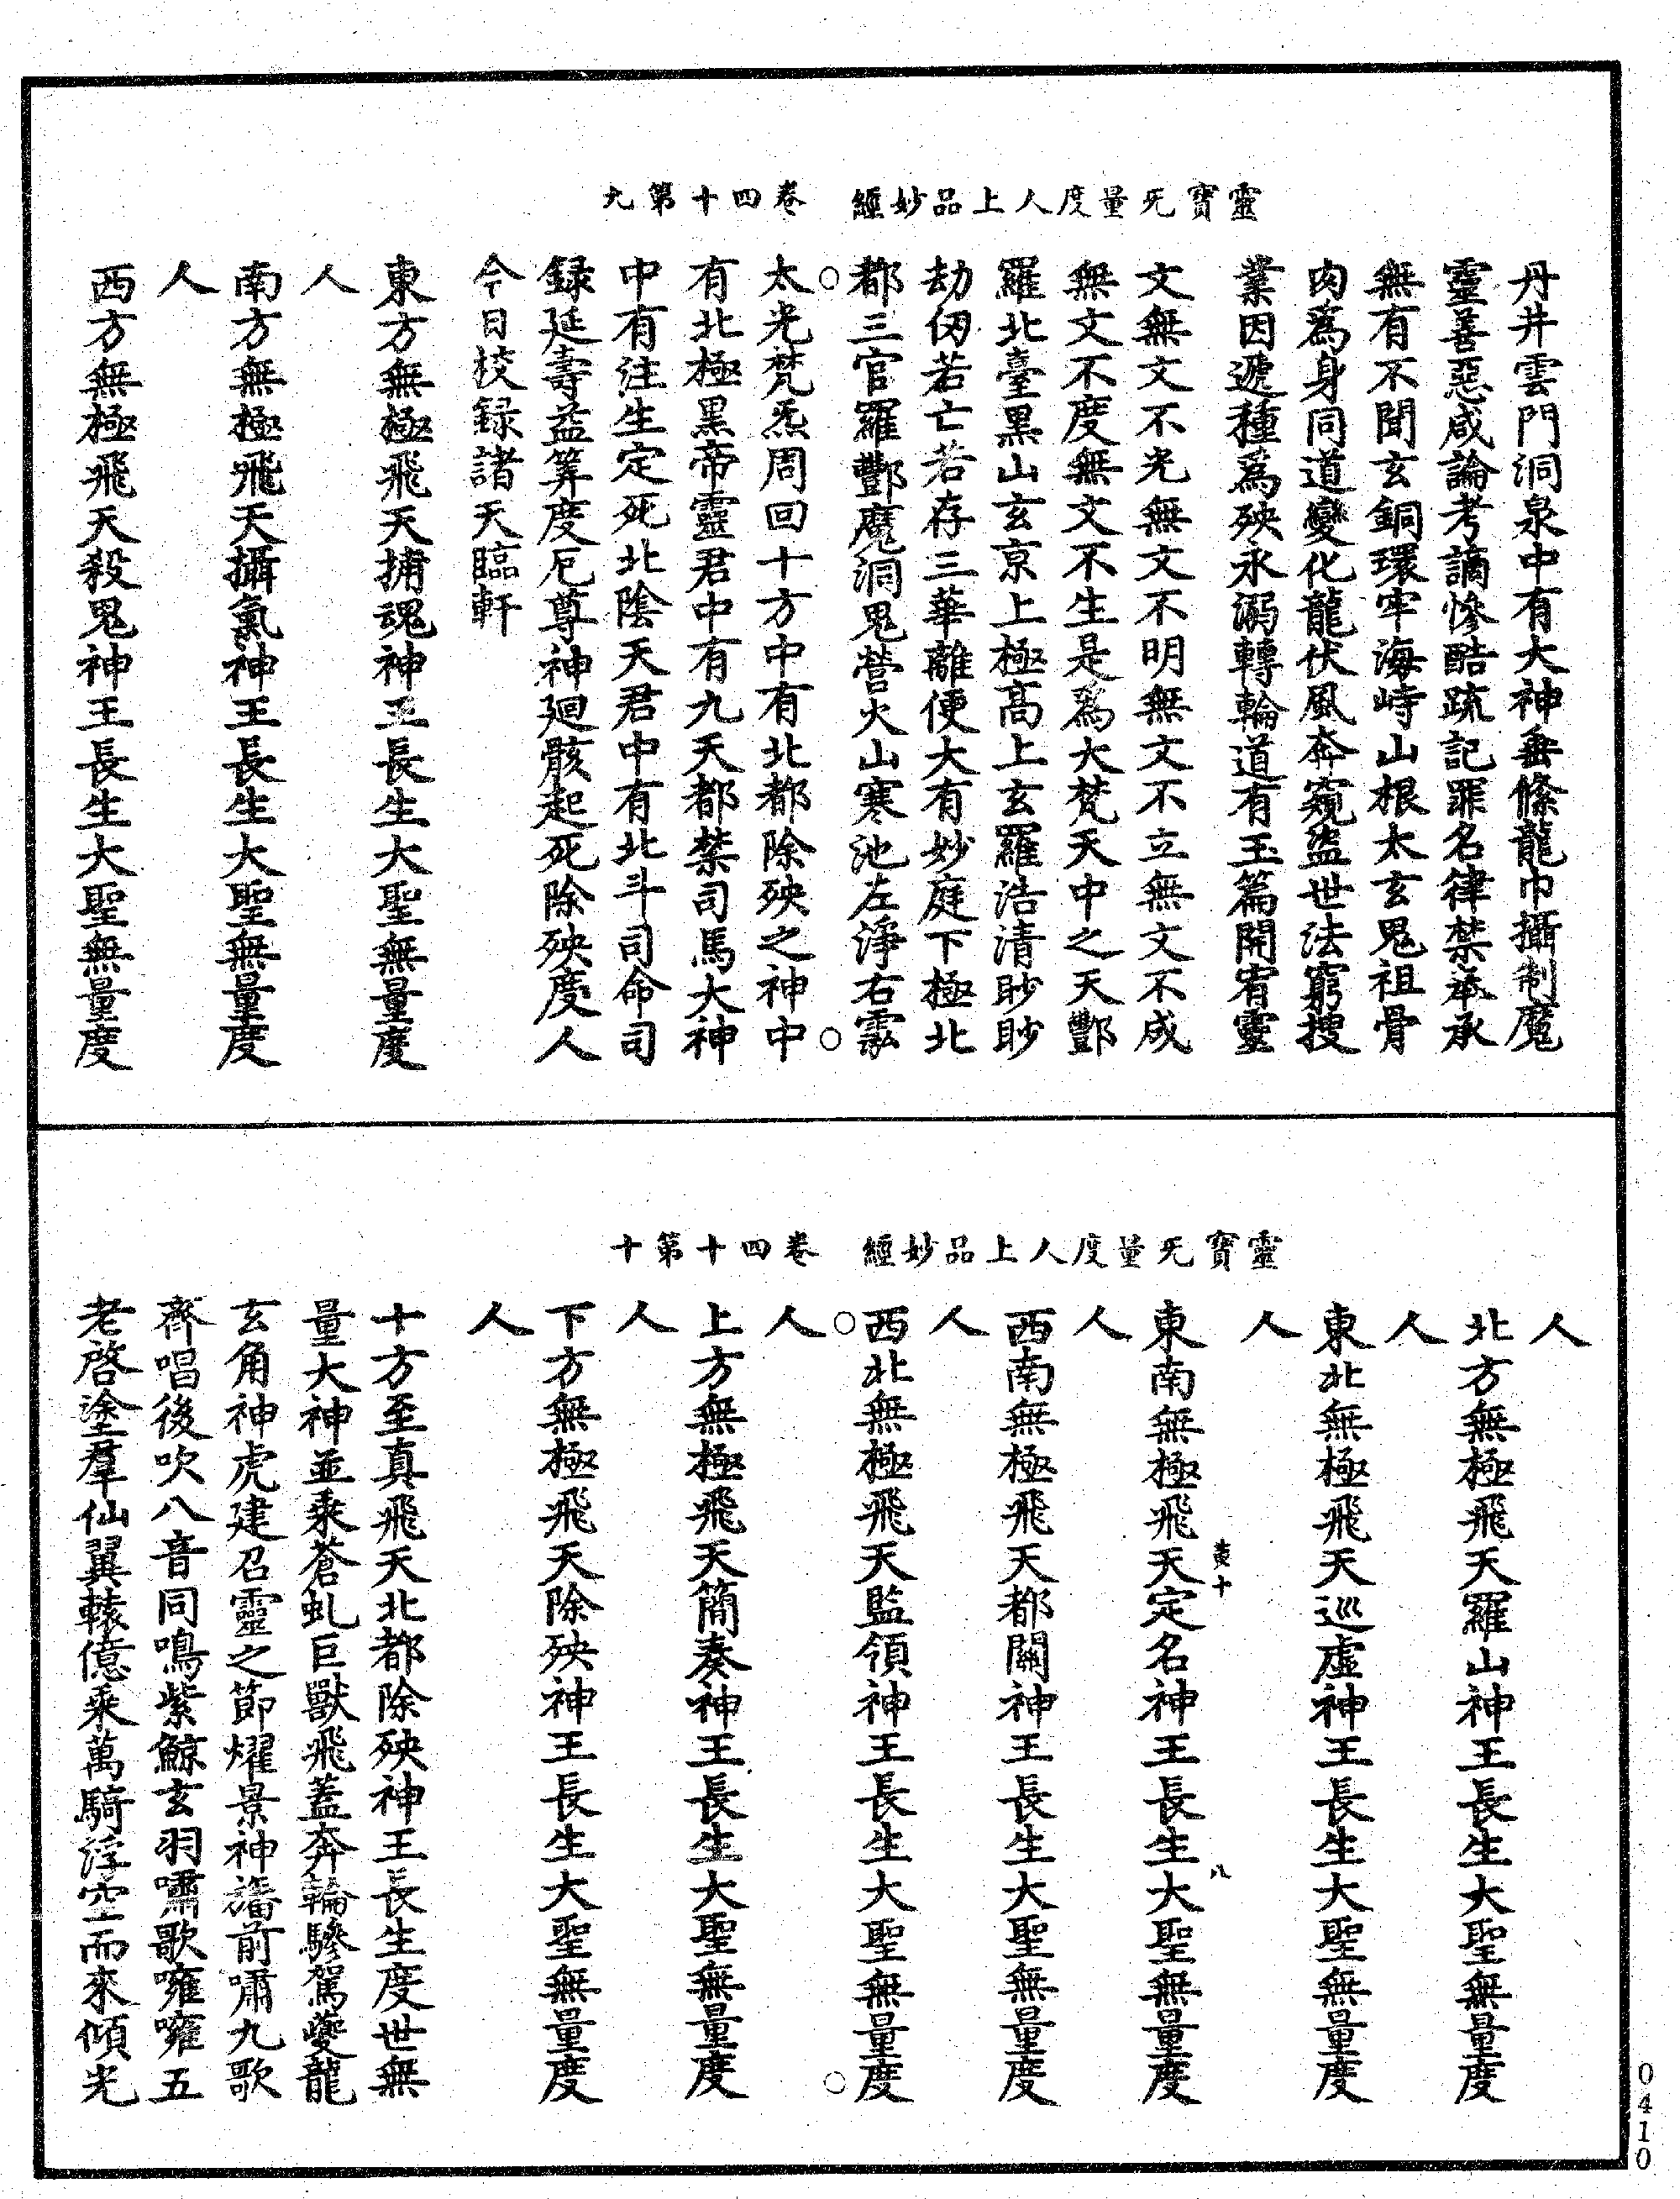 靈寶无量度人上品妙經　卷四十第九
丹井雲門洞泉中有大神垂絛龍巾攝制魔
靈善惡咸論考謫慘酷疏記罪名律禁承承
無有不聞玄銅環牢海峙山根太玄鬼祖骨
肉為身同道變化龍伏風奔窺盜世法窮搜
業因遞種為殃永溺轉輪道有玉篇開宥靈
文無文不光無文不明無文不立無文不成
無文不度無文不生是為大梵天中之天酆
羅北臺黑山玄京上極高上玄羅浩清眇眇
劫仞若亡若存三華離便大有妙庭下極北
都三官羅酆魔洞鬼營火山寒池左淨右
太光梵炁周回十方中有北都除殃之神中
有北極黑帝靈君中有九天都禁司馬大神
中有注生定死北陰天君中有北斗司命司
録延壽益筭度厄尊神廻骸起死除殃度人
今日校録諸天臨軒
東方無極飛天捕魂神王長生大聖無量度
人
南方無極飛天攝氣神王長生大聖無量度
人
西方無極飛天殺鬼神王長生大聖無量度
靈寶无量度人上品妙經　卷四十第十
人
北方無極飛天羅山神王長生大聖無量度
人
東北無極飛天巡虛神王長生大聖無量度
人
黃十　八
東南無極飛天定名神王長生大聖無量度
人
西南無極飛天都關神王長生大聖無量度
人
西北無極飛天監領神王長生大聖無量度
人
上方無極飛天簡奏神王長生大聖無量度
人
下方無極飛天除殃神王長生大聖無量度
人
十方至真飛天北都除殃神王長生度世無
量大神並乘蒼虬巨獸飛蓋奔輪驂駕夔龍
玄角神虎建召靈之節燿景神旛前嘯九歌
齊唱後吹八音同鳴紫鯨玄羽嘯歌嗺嗺五
老啓塗羣仙翼轅億乘萬騎浮空而來傾光
0410